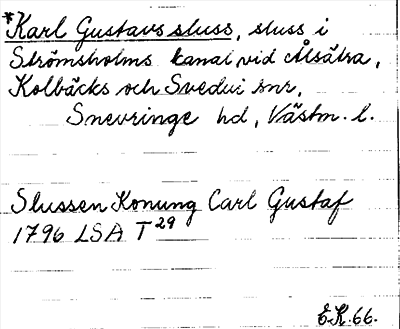 *Karl Gustavs sluss, sluss i
Strömsholms kanal vid Ålsätra,
Kolbäcks och Svedvi snr,
Snevringe hd, Västm. l.
Slussen Konung Carl Gustaf
1796 LSA T 29
E.K. 66.